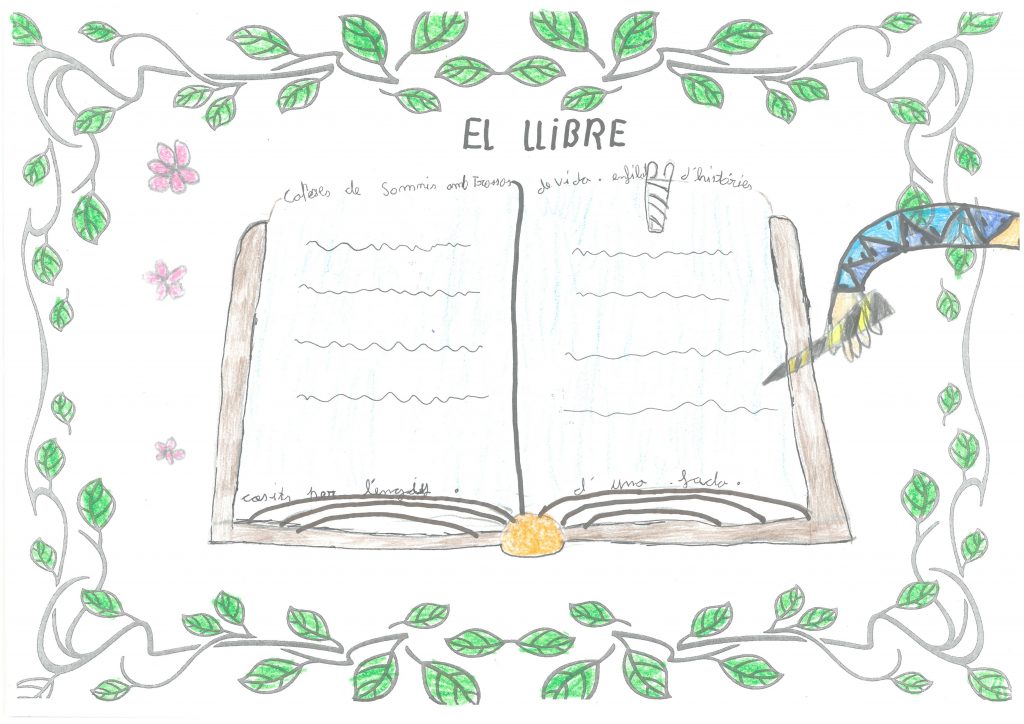 EL LLiBRE
Cofres de Somnis amb Trossos de vida. d'històries
cosits per . d' una fada.